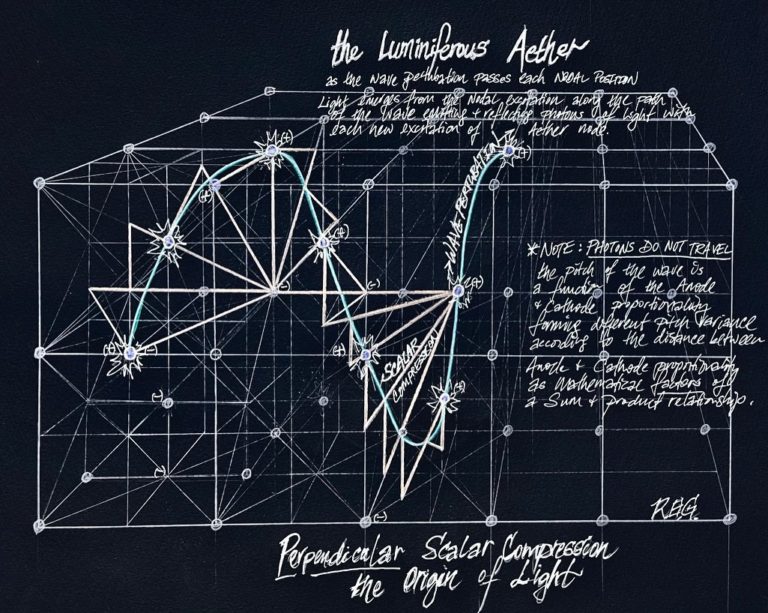 the Luminiferous Aether
as the wave pertubation passes each NODAL POSITION
Light Emerges from the Nodal Excitation along the path
of the wave emitting + reflecting photons of Light with
each new excitation of Aether node.
(+)
(+)
(+)
(+)
WAVE PERTUBATION
*NOTE: PHOTONS DO NOT TRAVEL
the pitch of the wave is
a function of the Anode
& Cathode proportionality
forming different pitch variance
according to the distance between
Anode & Cathode proportionality
as Mathematical factors of
a Sum & product relationship.
(-)
(-)
(+)
(+)
(-)
(+)
SCALAR
COMPRESSION
(+)
(-)
(-)
(-)
R.E.G.
Perpendicular Scalar Compression
the Origin of Light